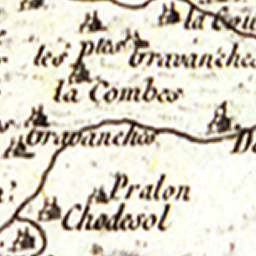 la Cou
les ptes Gravanches
la Combes
Gravanches
De
Pralon
Chodesol